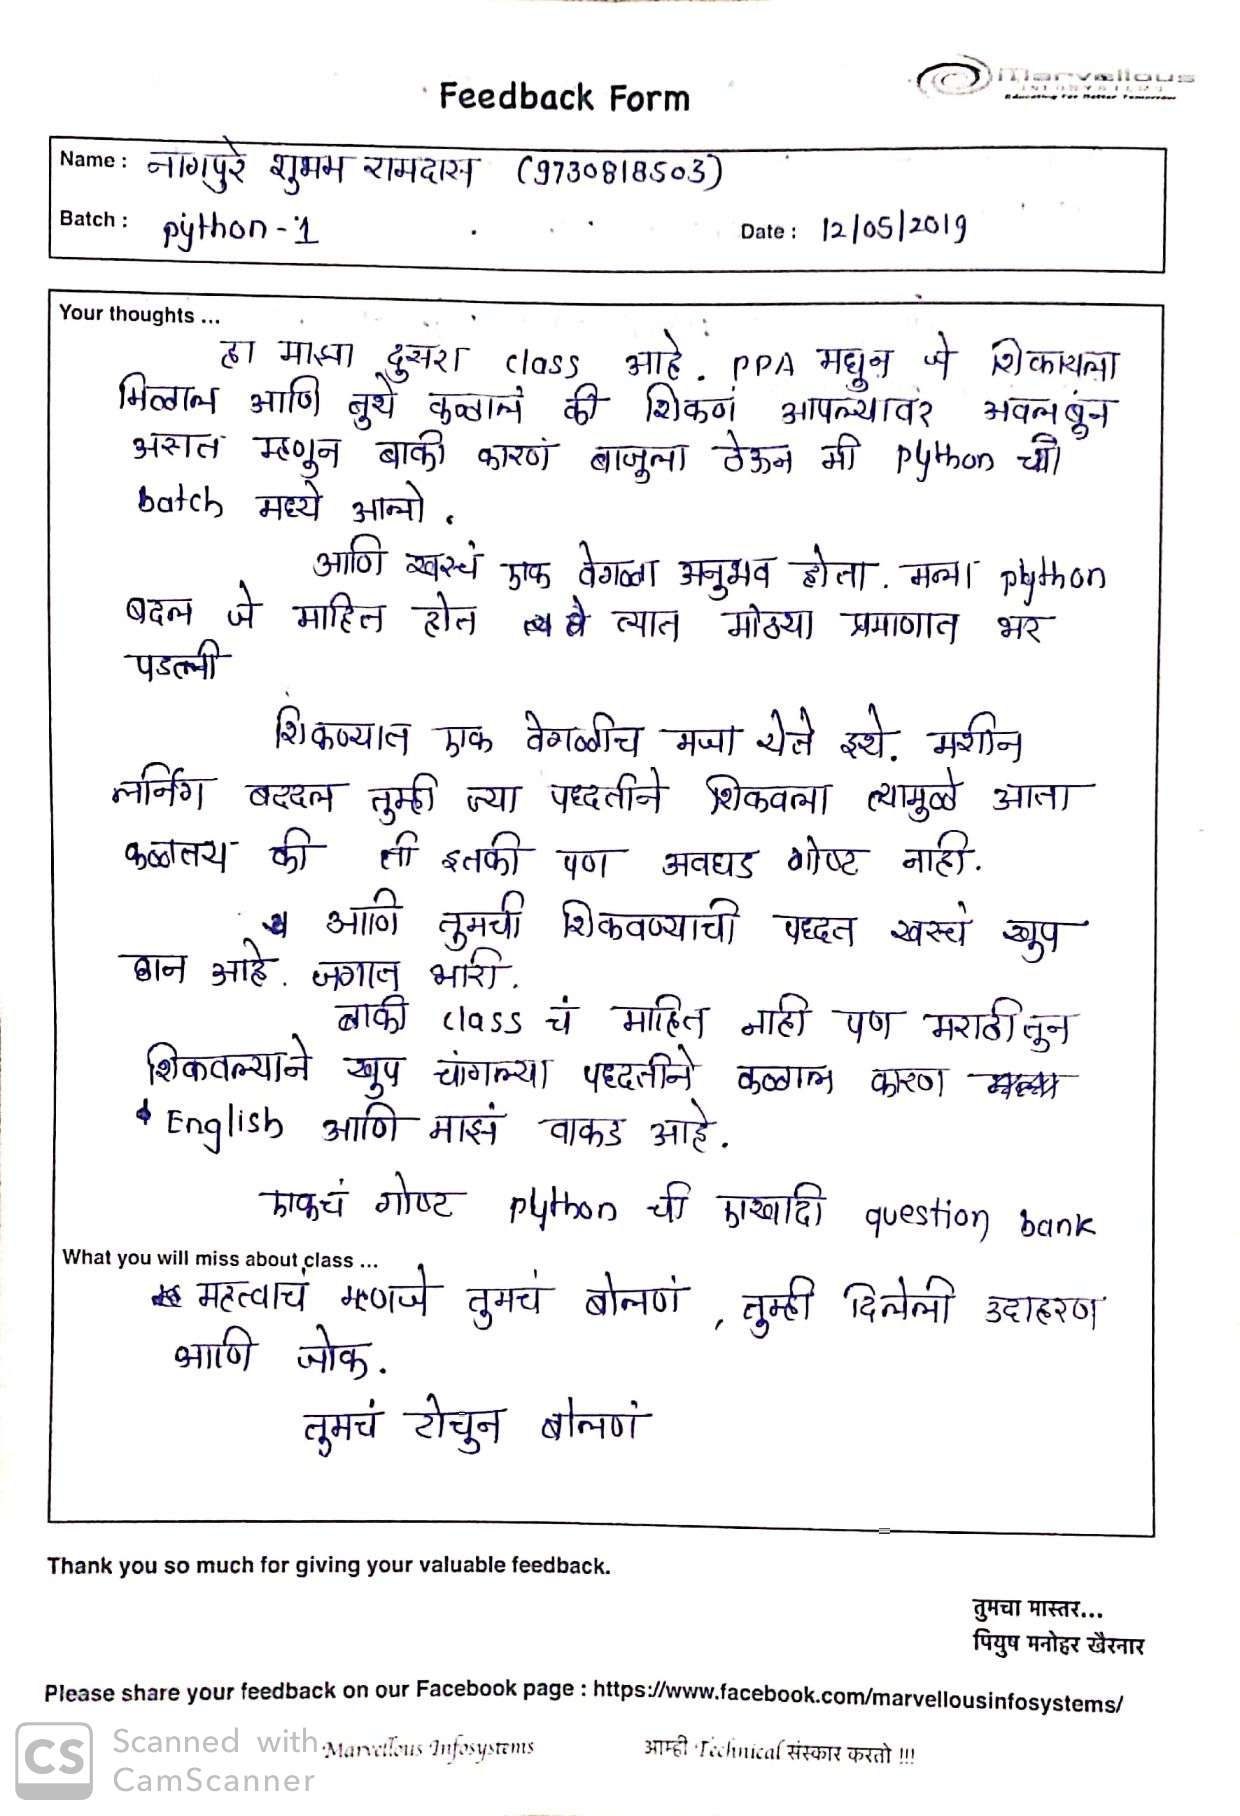 Feedback Form
Marvellous
INFOSYSTEMS
Educating For Better Tomorrow
Name : नागपुरे शुभम रामदास (9730818503)
Batch : python - 1
Date : 12/05/2019
Your thoughts ...
हा माझा दुसरा class आहे. PPA मधुन जे शिकायला
मिळाल आणि तुथे कळालं की शिकणं आपल्यावर अवलबुंन
असतं म्हणुन बाकी कारणं बाजुला ठेऊन मी python ची
batch मध्ये आलो.
आणि खरचं एक वेगळा अनुभव होता. मला python
बदल जे माहित होत त्यात मोठ्या प्रमाणात भर
पडली
शिकण्यात एक वेगळीच मजा येते इथे. मशीन
लर्निंग बददल तुम्ही ज्या पध्दतीने शिकवला त्यामुळे आता
कळालय की ती इतकी पण अवघड गोष्ट नाही.
आणि तुमची शिकवण्याची पध्दत खरचं खुप
छान आहे. जगात भारी.
बाकी class चं माहित नाही पण मराठीतुन
शिकवल्याने खुप चांगल्या पध्दतीने कळाल कारण
English आणि माझं वाकड आहे.
एकचं गोष्ट python ची एखादि question bank
What you will miss about class ...
महत्वाचं म्हणजे तुमचं बोलणं , तुम्ही दिलेली उदाहरण
आणि जोक.
तुमचं टोचुन बोलणं
Thank you so much for giving your valuable feedback.
तुमचा मास्तर...
पियुष मनोहर खैरनार
Please share your feedback on our Facebook page : https://www.facebook.com/marvellousinfosystems/
Marvellous Infosystems आम्ही Technical संस्कार करतो !!!
CS Scanned with
CamScanner